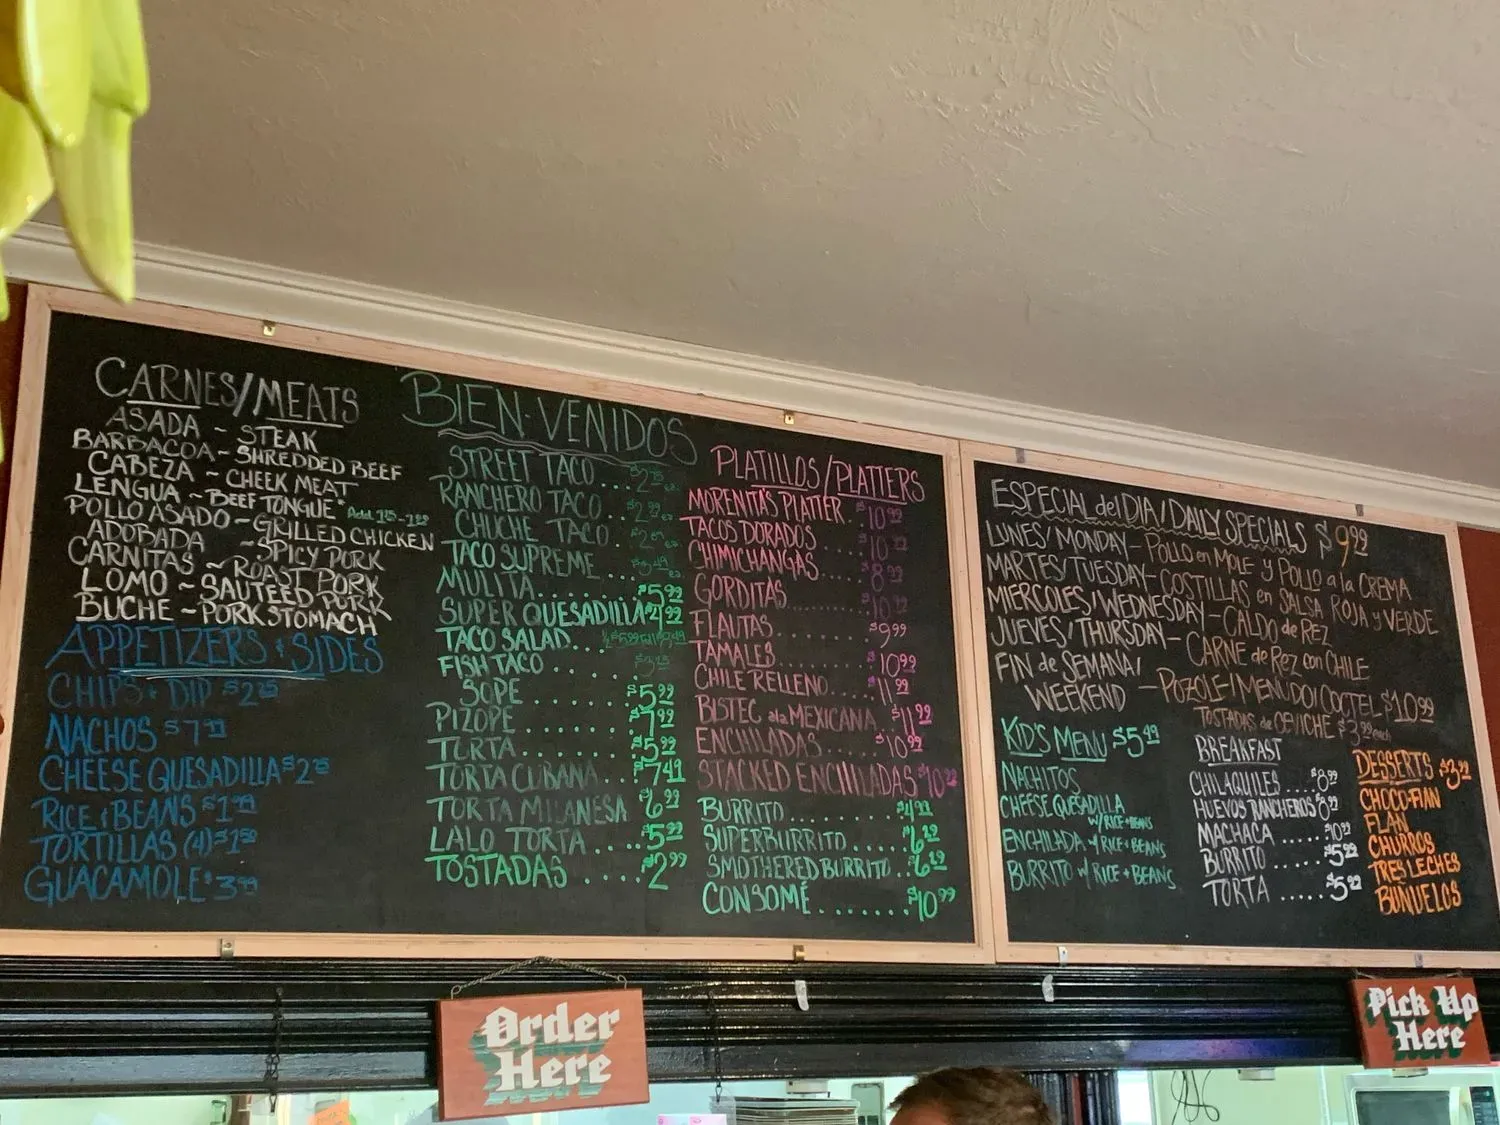 CARNES/MEATS
ASADA ~ STEAK
BARBACOA ~ SHREDDED BEEF
CABEZA ~ CHEEK MEAT
LENGUA ~ BEEF TONGUE Add
POLLO ASADO ~ GRILLED CHICKEN
ADOBADA ~ SPICY PORK
CARNITAS ~ ROAST PORK
LOMO ~ SAUTEED PORK
BUCHE ~ PORK STOMACH
APPETIZERS & SIDES
CHIPS & DIP
NACHOS $7.99
CHEESE QUESADILLA
RICE & BEANS $1.99
TORTILLAS (4) $1.50
GUACAMOLE $3.99
BIEN-VENIDOS
STREET TACO
RANCHERO TACO
CHUCHE TACO
TACO SUPREME
MULITA........$5.99
SUPER QUESADILLA $4.99
TACO SALAD
FISH TACO
SOPE.......$5.99
PIZOPE.....$7.99
TORTA.......$5.99
TORTA CUBANA...$7.49
TORTA MILANESA $6.99
LALO TORTA....$5.99
TOSTADAS....$2.99
PLATILLOS/PLATTERS
MORENITA'S PLATTER..$10.99
TACOS DORADOS....$10.99
CHIMICHANGAS....$8.99
GORDITAS........$10.99
FLAUTAS........$9.99
TAMALES........$10.99
CHILE RELLENO....$11.99
BISTEC a la MEXICANA..$11.99
ENCHILADAS......$10.99
STACKED ENCHILADAS $10.99
BURRITO.........$4.99
SUPER BURRITO
SMOTHERED BURRITO
CONSOMÉ.......$10.99
ESPECIAL del DIA/DAILY SPECIALS $9.99
LUNES/MONDAY - POLLO en MOLE y POLLO a la CREMA
MARTES/TUESDAY - COSTILLAS en SALSA ROJA y VERDE
MIERCOLES/WEDNESDAY - CALDO de REZ
JUEVES/THURSDAY - CARNE de REZ con CHILE
FIN de SEMANA/
WEEKEND - POZOLE/MENUDO/COCTEL $10.99
TOSTADAS de CEVICHE $3.99 each
KID'S MENU $5.49
NACHITOS
CHEESE QUESADILLA
W/ RICE + BEANS
ENCHILADA w/ RICE + BEANS
BURRITO w/ RICE + BEANS
BREAKFAST
CHILAQUILES...$8.99
HUEVOS RANCHEROS $8.99
MACHACA....$10.99
BURRITO....$5.99
TORTA.....$5.99
DESSERTS $3.99
CHOCO-FLAN
FLAN
CHURROS
TRES LECHES
BUÑUELOS
Order
Here
Pick Up
Here